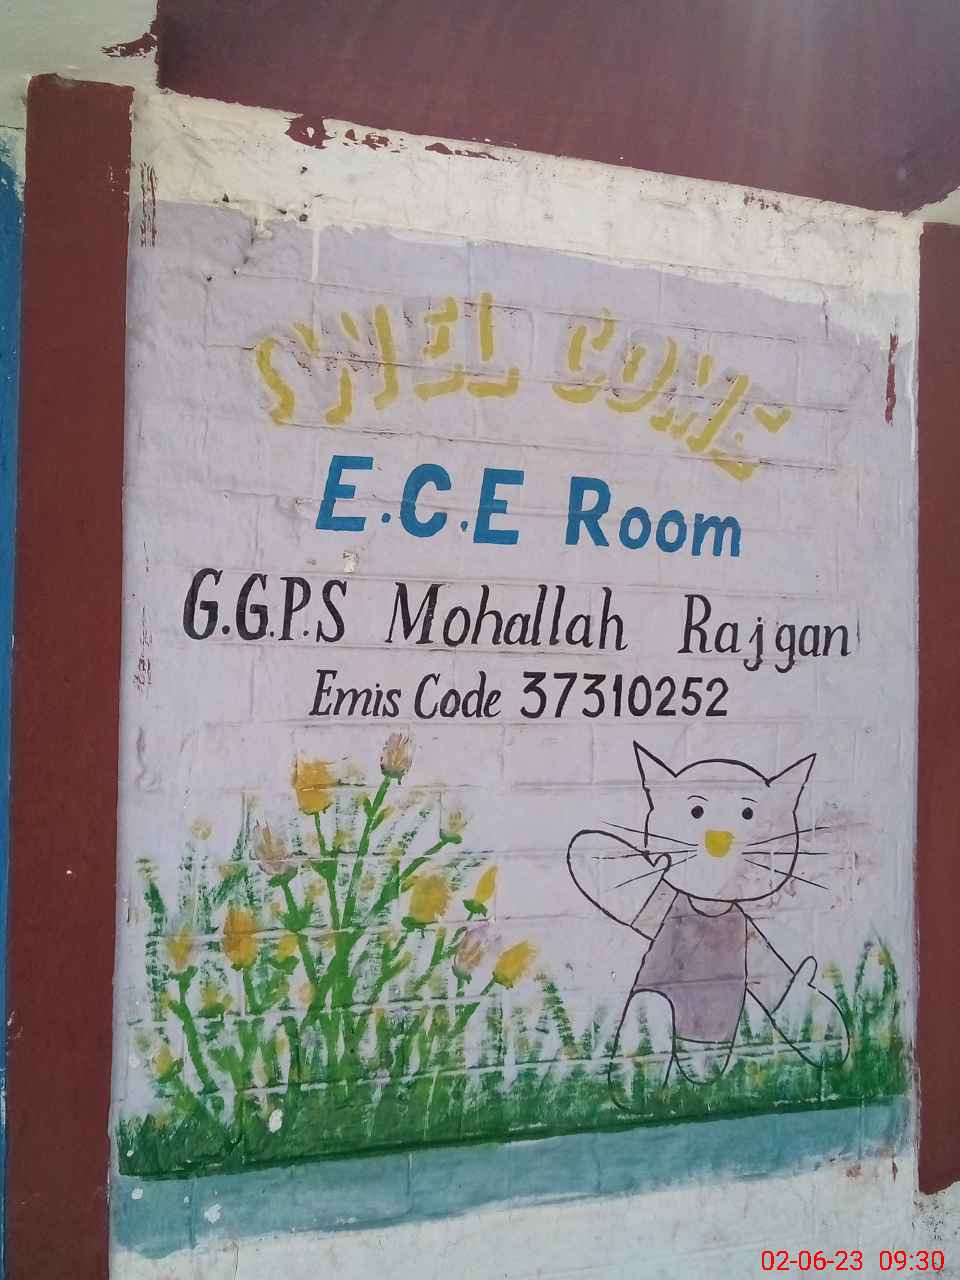 SWEL COME
E.C.E Room
G.G.P.S Mohallah Rajgan
Emis Code 37310252
02-06-23 09:30